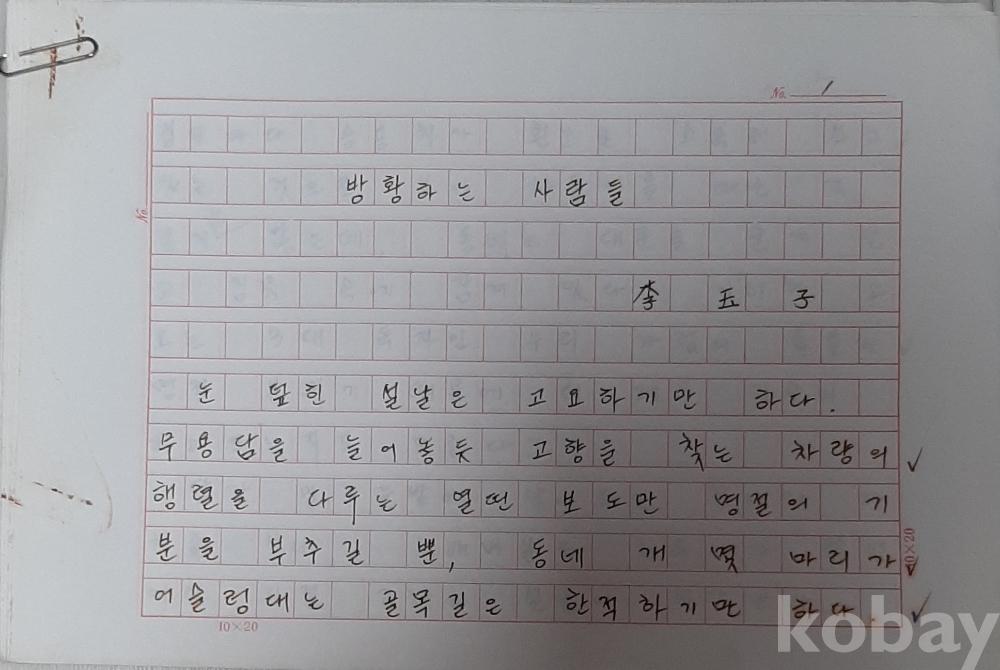 No. 1
방황하는 사람들
李玉子
눈 덮힌 설날은 고요하기만 하다.
무용담을 늘어놓듯 고향을 찾는 차량의
행렬을 다루는 열띤 보도만 명절의 기
분을 부추길 뿐, 동네 개 몇 마리가
어슬렁대는 골목길은 한적하기만 하다.
10×20
10×20
No.
kobay